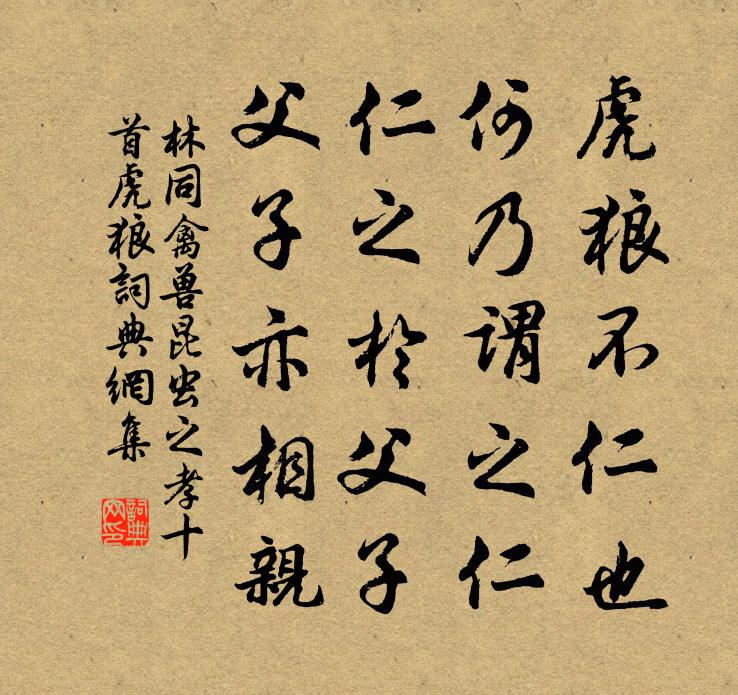 虎狼不仁也
何乃謂之仁
仁之於父子
父子亦相親
林同禽兽昆虫之孝十
首虎狼詞典網集
詞典
网印